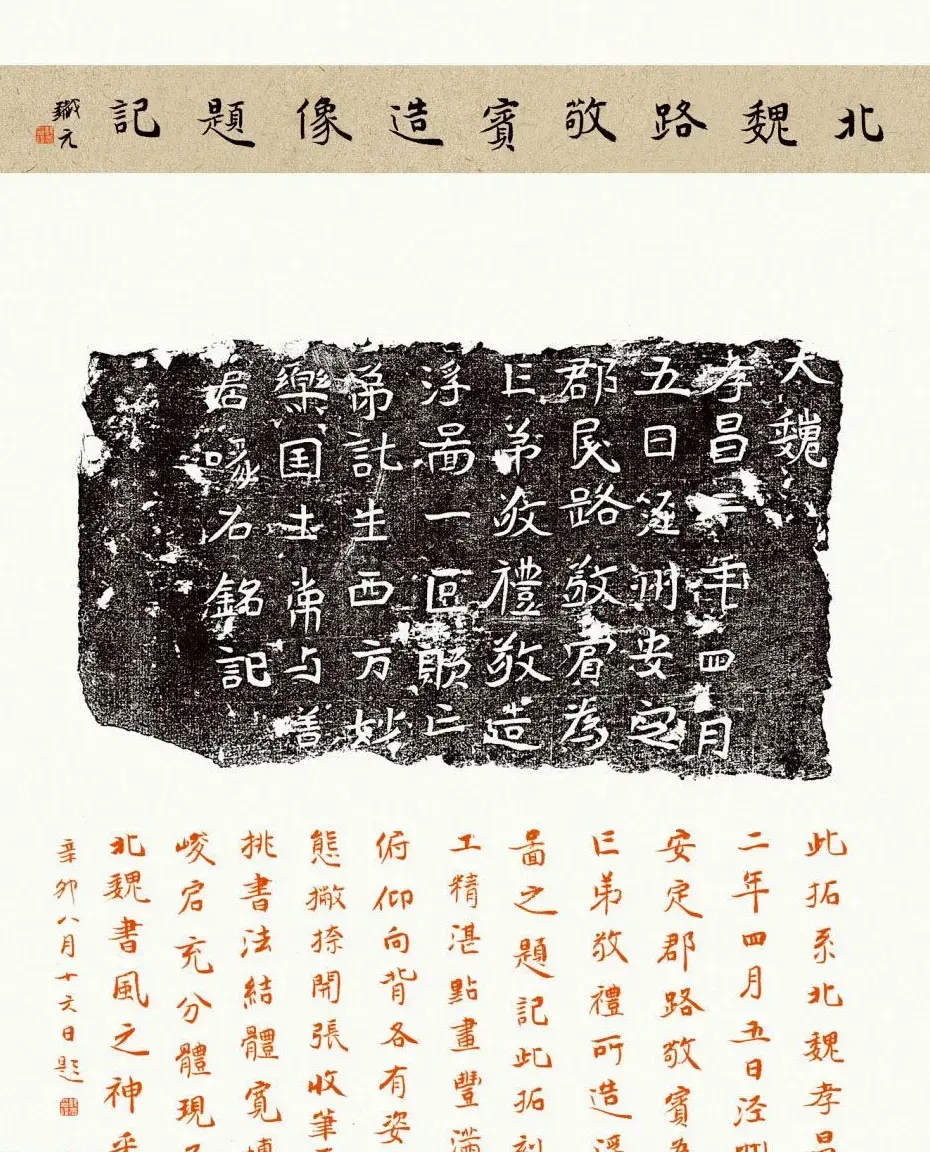 北魏路敬賓造像題記
元
大魏
孝昌二年四月
五日涇州安定
郡民路敬賓為
亡弟敬禮敬造
浮啚一區願亡
弟託生西方妙
樂国土常与善
居啄石銘記
此拓系北魏孝昌
二年四月五日涇州
安定郡路敬賓為
亡弟敬禮所造浮
啚之題記此拓刻
工精湛點畫豐滿
俯仰向背各有姿
態撇捺開張收筆
挑書法結體寬博
峻宕充分體現
北魏書風之神采
辛卯八月十六日題